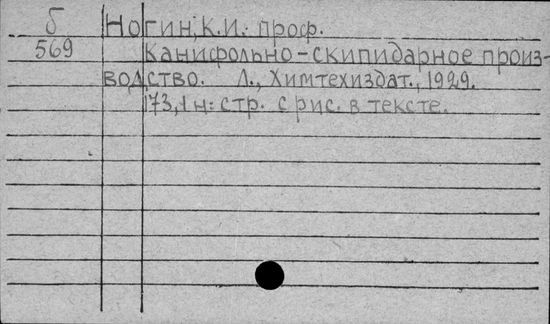 Б Ногин, К.И. проф.
569 Канифольно-скипидарное произ-
водство. Л., Химтехиздат., 1929.
173,1 н. стр. с рис. в тексте.